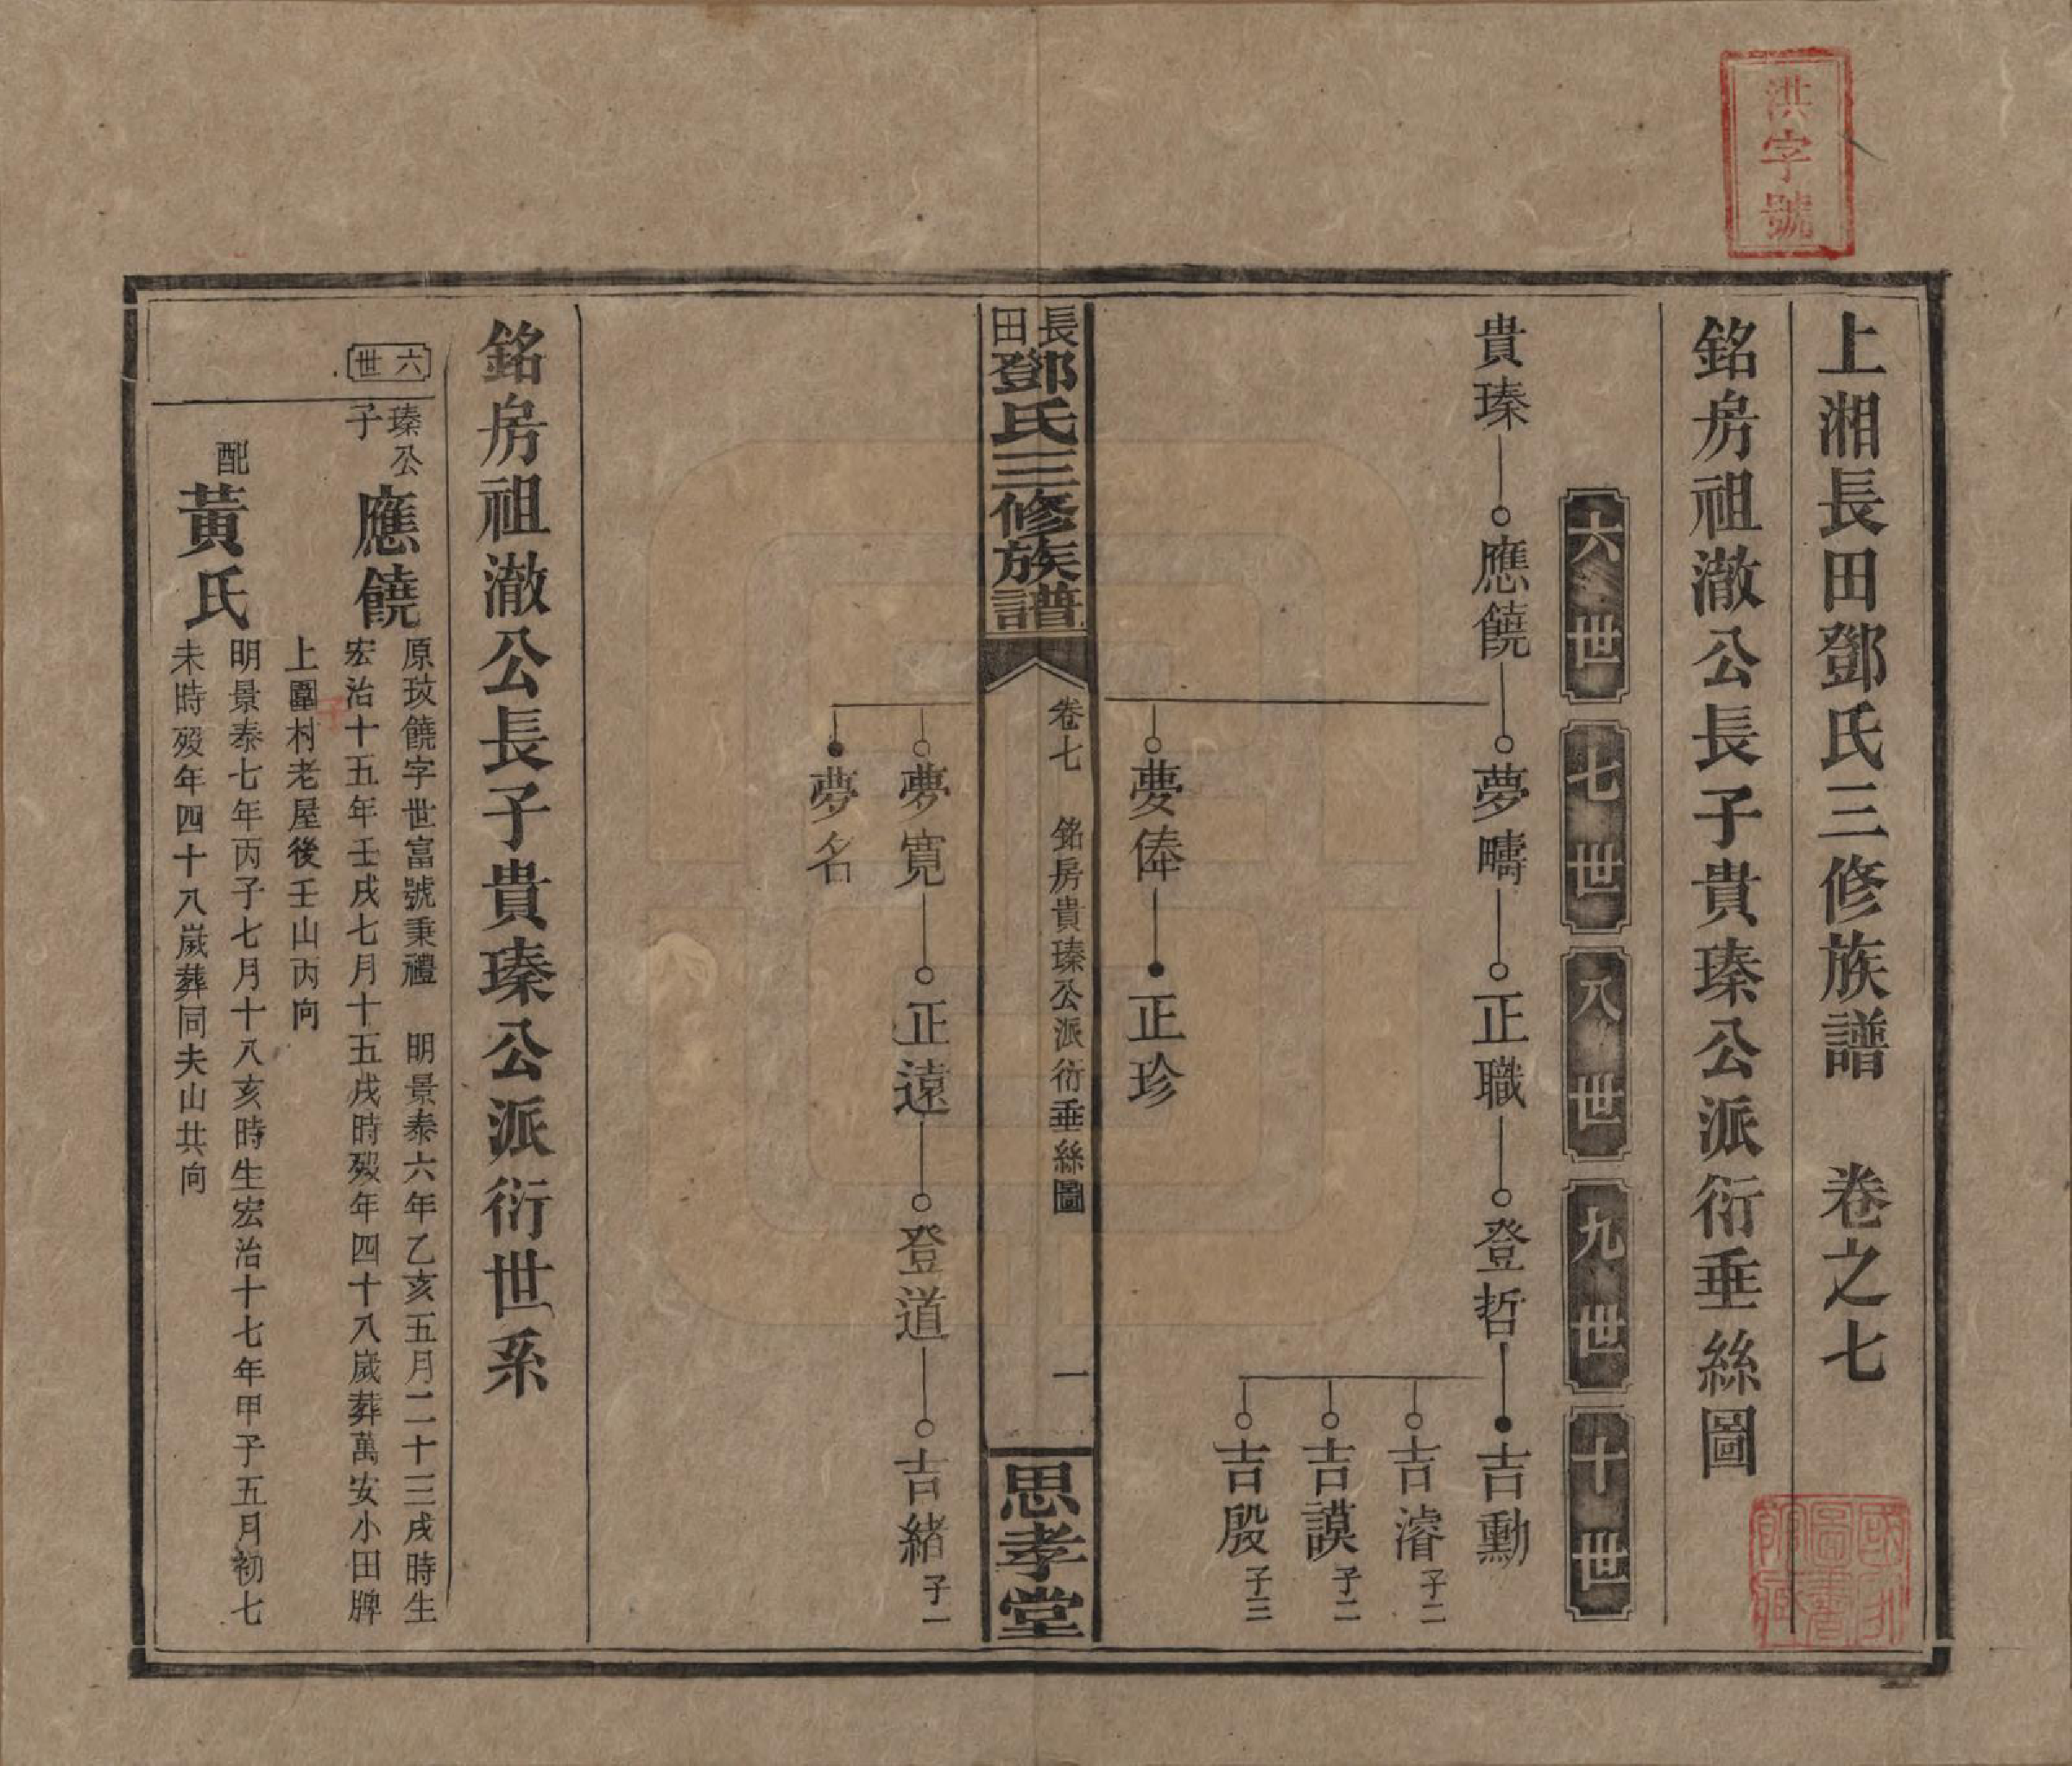 洪字號
上湘長田鄧氏三修族譜　卷之七
銘房祖澈公長子貴瑧公派衍垂絲圖
六世
七世
八世
九世
十世
貴瑧
應饒
夢疇
正職
登哲
吉勳
吉濬
子二
吉謨
子二
吉殷
子三
夢俸
正珍
長田
鄧氏三修族譜
卷七　銘房貴瑧公派衍垂絲圖
一
思孝堂
夢寬
正遠
登道
吉緒
子一
夢名
銘房祖澈公長子貴瑧公派衍世系
六世
瑧公
子
應饒
原玟饒字世富號秉禮　明景泰六年乙亥五月二十三戌時生
宏治十五年壬戌七月十五戌時歿年四十八歲葬萬安小田牌
上圍村老屋後壬山丙向
子
配
黃氏
明景泰七年丙子七月十八亥時生宏治十七年甲子五月初七
未時歿年四十八歲葬同夫山共向